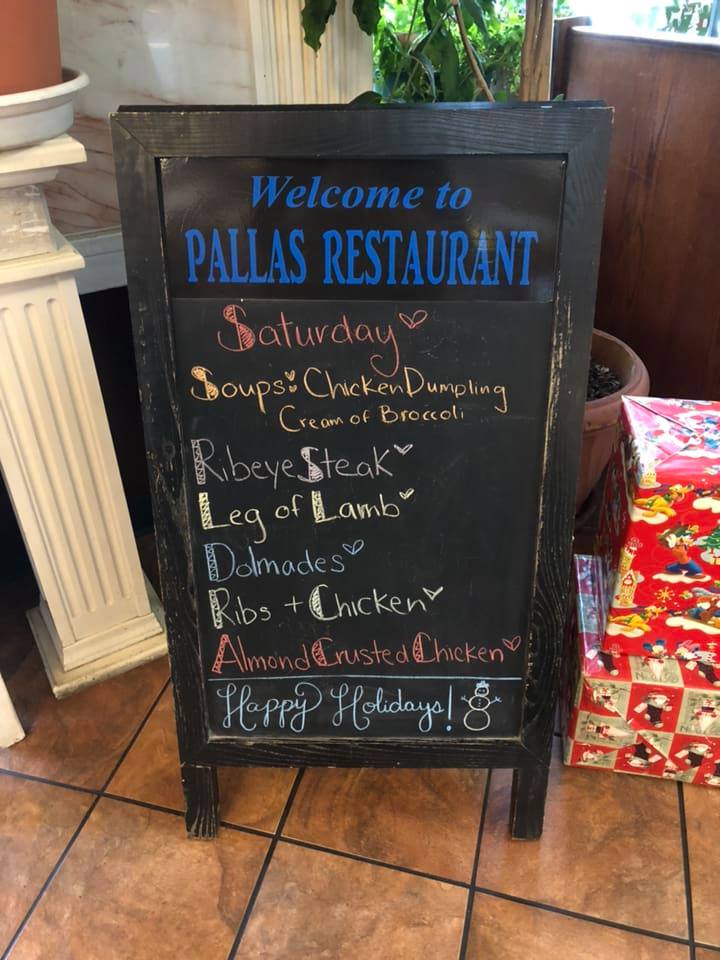 Welcome to
PALLAS RESTAURANT
Saturday
Soups: Chicken Dumpling
Cream of Broccoli
Ribeye Steak
Leg of Lamb
Dolmades
Ribs + Chicken
Almond Crusted Chicken
Happy Holidays!